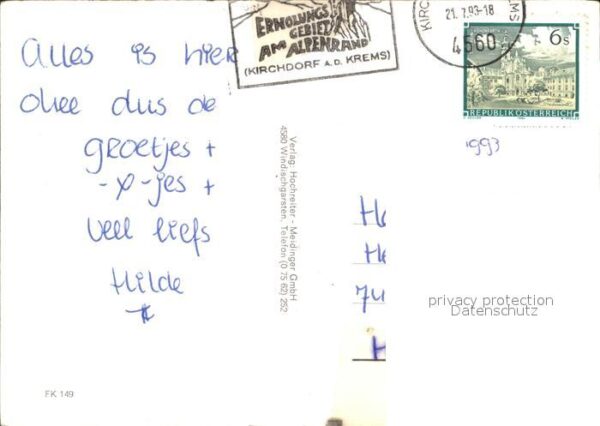 Alles is hier
okee dus de
groetjes +
-x-jes +
veel liefs
Hilde
ERHOLUNGS
GEBIET
AM ALPENRAND
(KIRCHDORF A.D. KREMS)
21.7.93-18
4560
6s
REPUBLIK ÖSTERREICH
1993
Verlag: Hochreiter - Meidinger GmbH
4580 Windischgarsten, Telefon (0 75 62) 252
He
He
74
H
privacy protection
Datenschutz
FK 149